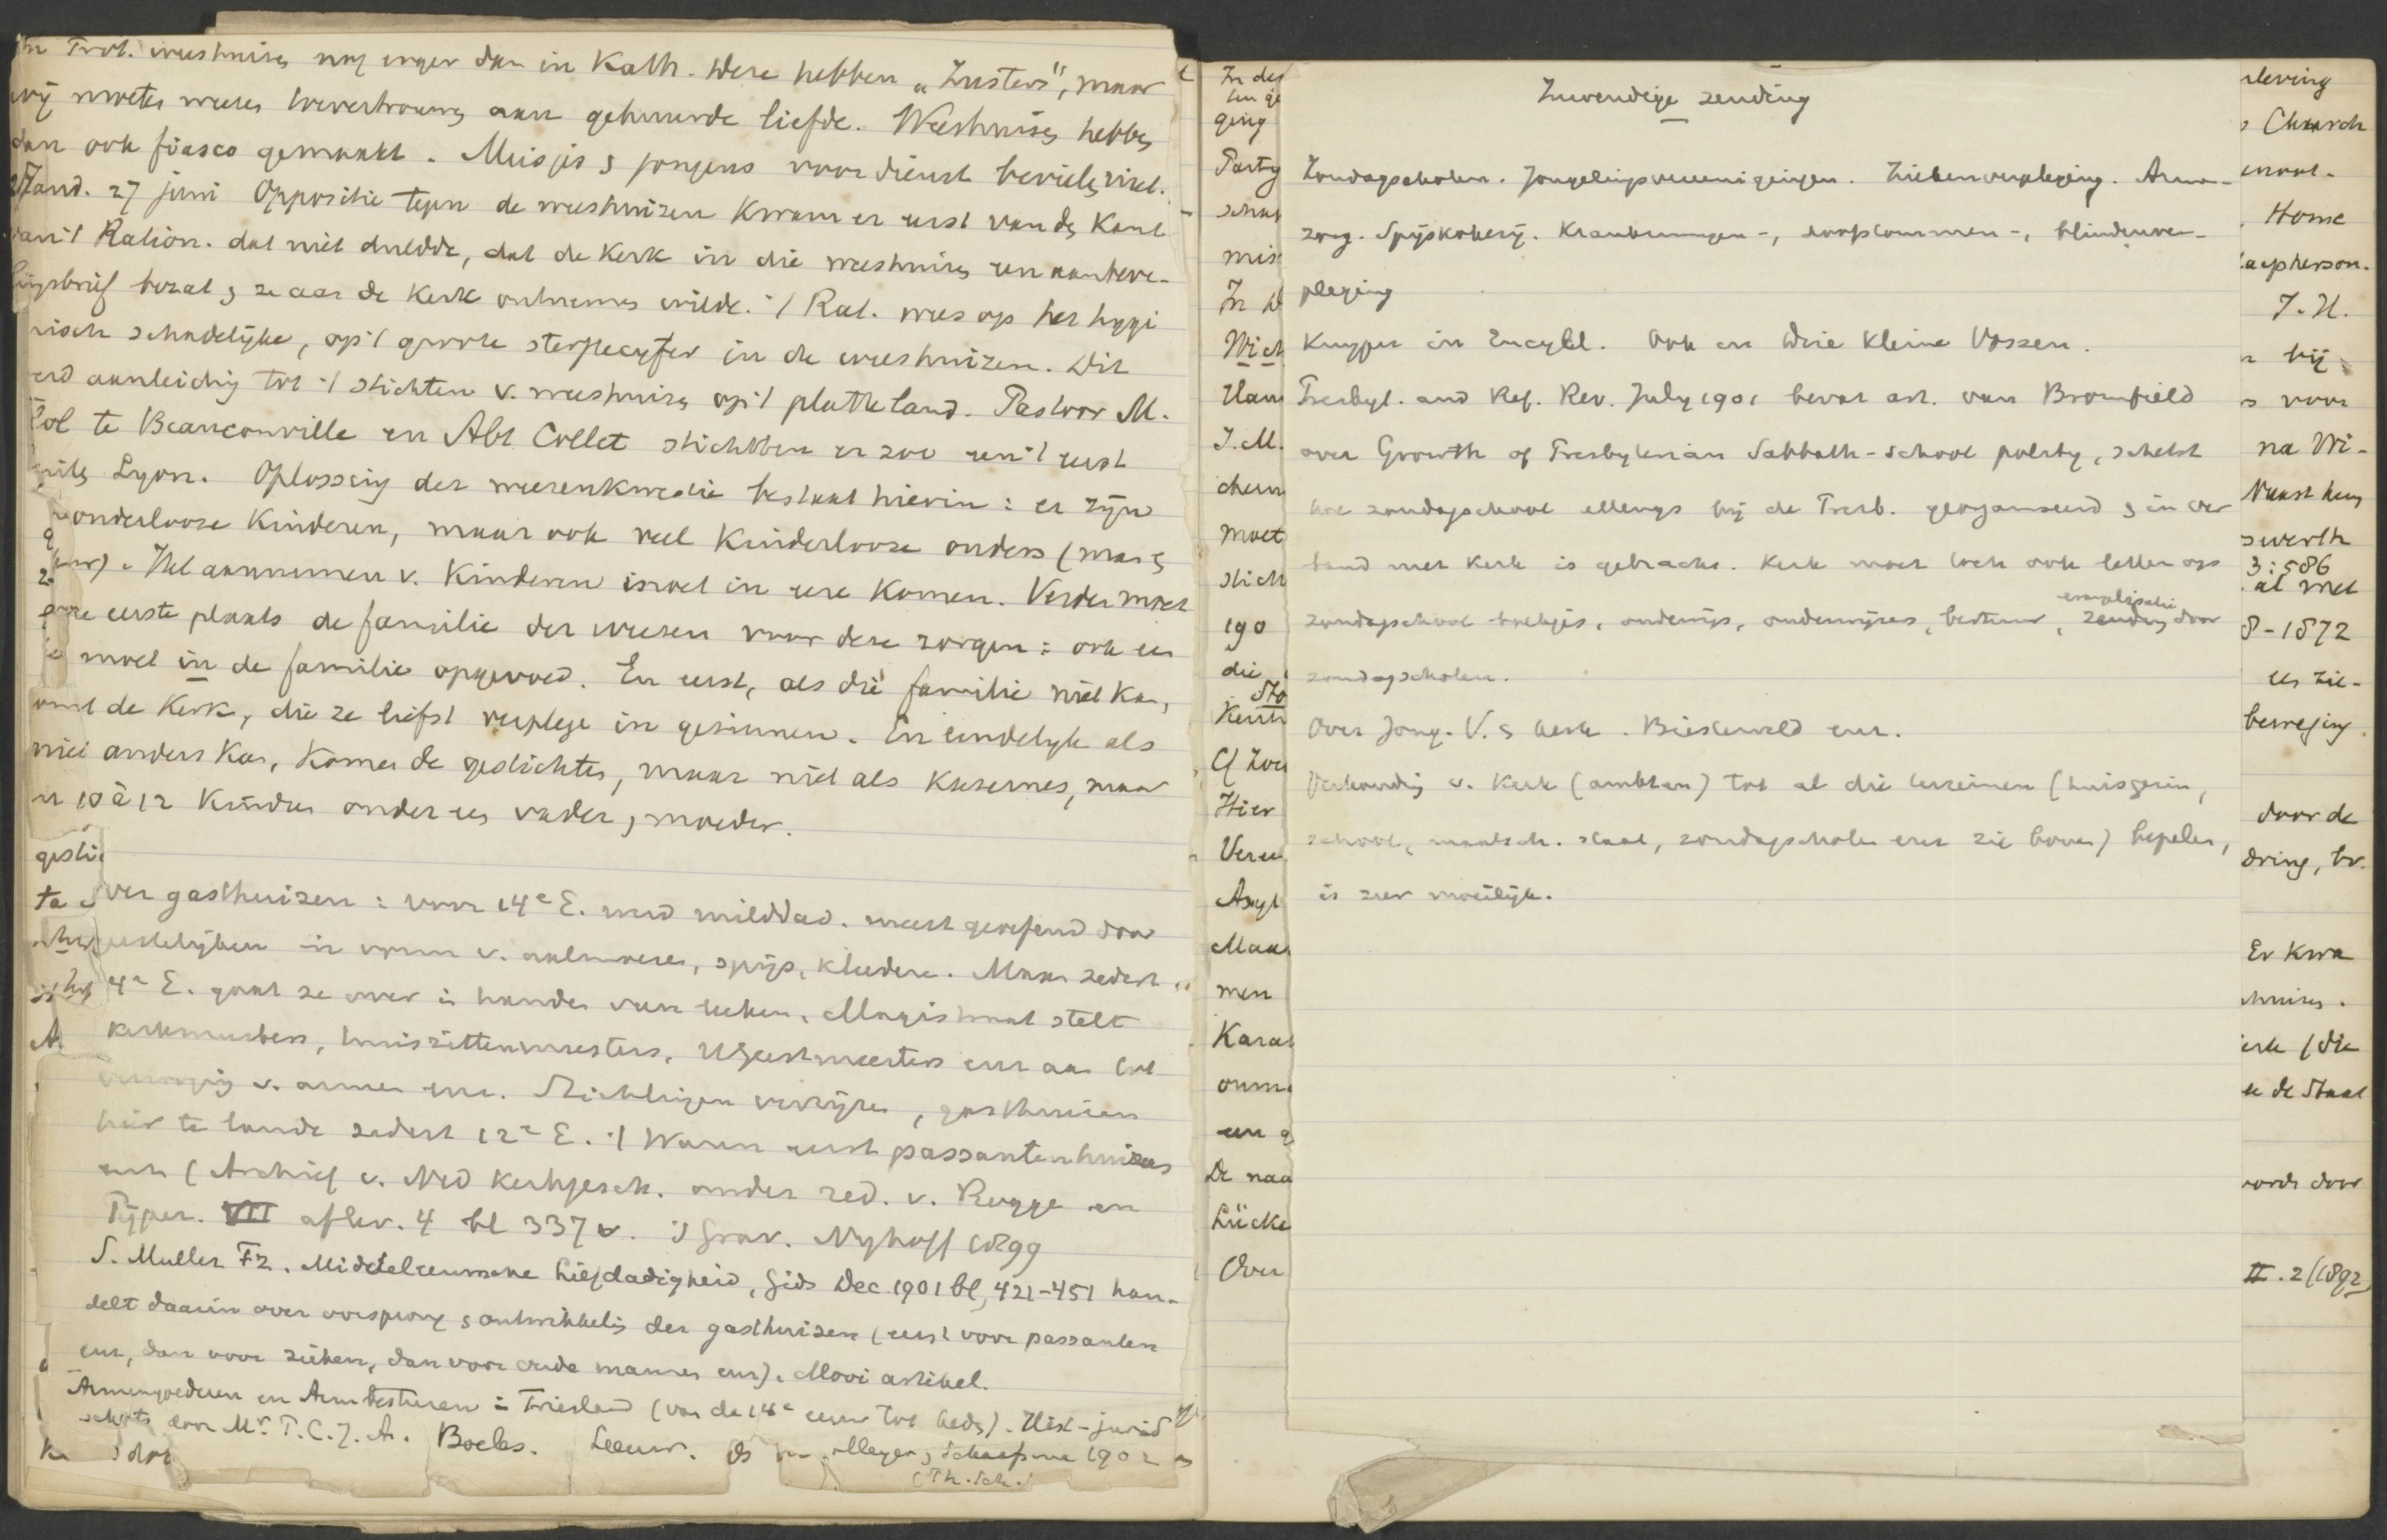 Prot. weeshuizen nog erger dan in Kath. Deze hebben „Zusters", maar
wij moeten weezen toevertrouwen aan gehuurde liefde. Weeshuizen hebben
dan ook fiasco gemaakt. Meisjes & jongens voor dienst
Stand. 27 juni Oppositie tegen de weeshuizen kwam er eerst van de kant
van 't Ration. dat niet duldde, dat de Kerk in die weeshuizen een aanbeve-
lingsbrief bezat & ze aan de Kerk ontnemen wilde. 't Rat. wees op het hygi
nisch schadelijke, op 't groote sterftecijfer in de weeshuizen. Dit
werd aanleiding tot 't stichten v. weeshuizen op 't platte land. Pastoor M.
te Beauconville en Abt Collet stichtten er zoo een 't eerst
Lyon. Oplossing der weezenkwestie bestaat hierin: er zijn
onderlooze Kinderen, maar ook veel Kinderlooze ouders (man &
Het aannemen v. Kinderen moet in eere komen. Verder moet
eerste plaats de familie der weezen voor deze zorgen: ook een
moet in de familie opgevoed. En eerst, als die familie niet kan,
komt de Kerk, die ze liefst verplege in gezinnen. En eindelijk als
niet anders kan, komen de gestichten, maar niet als Kazernes, maar
10 à 12 Kinders onder een vader & moeder.
gesti
ta
over gasthuizen: voor 14e E. werd milddad. meest geoefend door
geestelijken in vorm v. aalmoezen, spijs, kleederen. Maar zedert
14e E. gaat ze over in handen van leeken. Magistraat stelt
kerkmeesters, huiszittenmeesters, H Geestmeesters enz aan tot
verzorging v. armen enz. Stichtingen verrijzen, gasthuizen
hier te lande zedert 12e E. 't Waren eerst passantenhuizen
enz (Archief v. Ned Kerkgesch. onder red. v. Rogge en
Pijper. VII aflev. 4 bl 337 v. 's Grav. Nijhoff 1899
S. Muller Fz. Middeleeuwsche Liefdadigheid, Gids Dec. 1901 bl, 421-451 han-
delt daarin over oorsprong & ontwikkeling der gasthuizen (eerst voor passanten
enz, dan voor zieken, dan voor oude mannen enz). Mooi artikel.
Armengoederen en Armbesturen in Friesland (van de 14e eeuw tot heden). Hist-jurid
schets door Mr. T.C.J.A. Boeles. Leeuw. Meyer & Schaafsma 1902
(Th. Sch.)
In de
ging
Party
schul
mis
In D
Wich
Ham
J.M.
chen
moet
stich
190
die
Sto
Kerk
Cf Zoe
Hier
Veree
Asyl
Maa
men
Kara
een g
De naa
Lücke
Over
Inwendige zending
Zondagscholen. Jongelingsvereenigingen. Ziekenverpleging. Arme-
zorg. Spijskokerij. Krankzinnigen-, doofstommen-, blindenver-
pleging
Kuyper in Encycl. Ook in Drie Kleine Vossen.
Presbyt. and Ref. Rev. July 1901 bevat art. van Bromfield
over Growth of Presbyterian Sabbath-school polity, schetst
hoe zondagschool allengs bij de Presb. georganiseerd & in ver
band met Kerk is gebracht. Kerk moet toch ook letten op
zondagschool boekjes, onderwijs, onderwijzers, bestuur, evangelisatie zending door
zondagscholen.
Over Jong. V. & Kerk. Biesterveld enz.
Verhouding v. Kerk (ambten) tot al die terreinen (huisgezin,
school, maatsch. staat, zondagscholen enz zie boven) bepalen,
is zeer moeilijk.
leving
Church
Home
acpherson.
J. H.
bij
voor
na Wi-
Naast hen
swerth
3:586
al met
8-1872
een zie-
beweging
door de
dring, bv.
Er kwa
huizen.
kerk (die
de Staat
wordt door
II. 2 (1892)